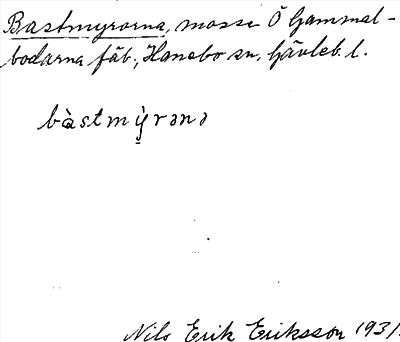 Bastmyrorna, mosse Ö Gammal-
bodarna fäb., Hanebo sn, Gävleb. l.
bàstmỵ̀rənə
Nils Erik Eriksson 1931.